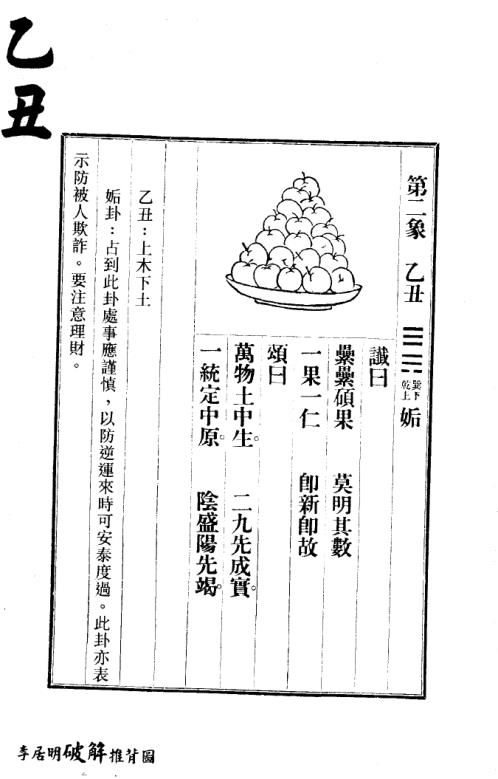 乙丑
第二象 乙丑 ䷫ 巽下乾上 姤
讖曰
纍纍碩果 莫明其數
一果一仁 即新即故
頌曰
萬物土中生。 二九先成實。
一統定中原。 陰盛陽先竭。
乙丑：上木下土
姤卦：占到此卦處事應謹慎，以防逆運來時可安泰度過。此卦亦表
示防被人欺詐。要注意理財。
李居明破解推背圖